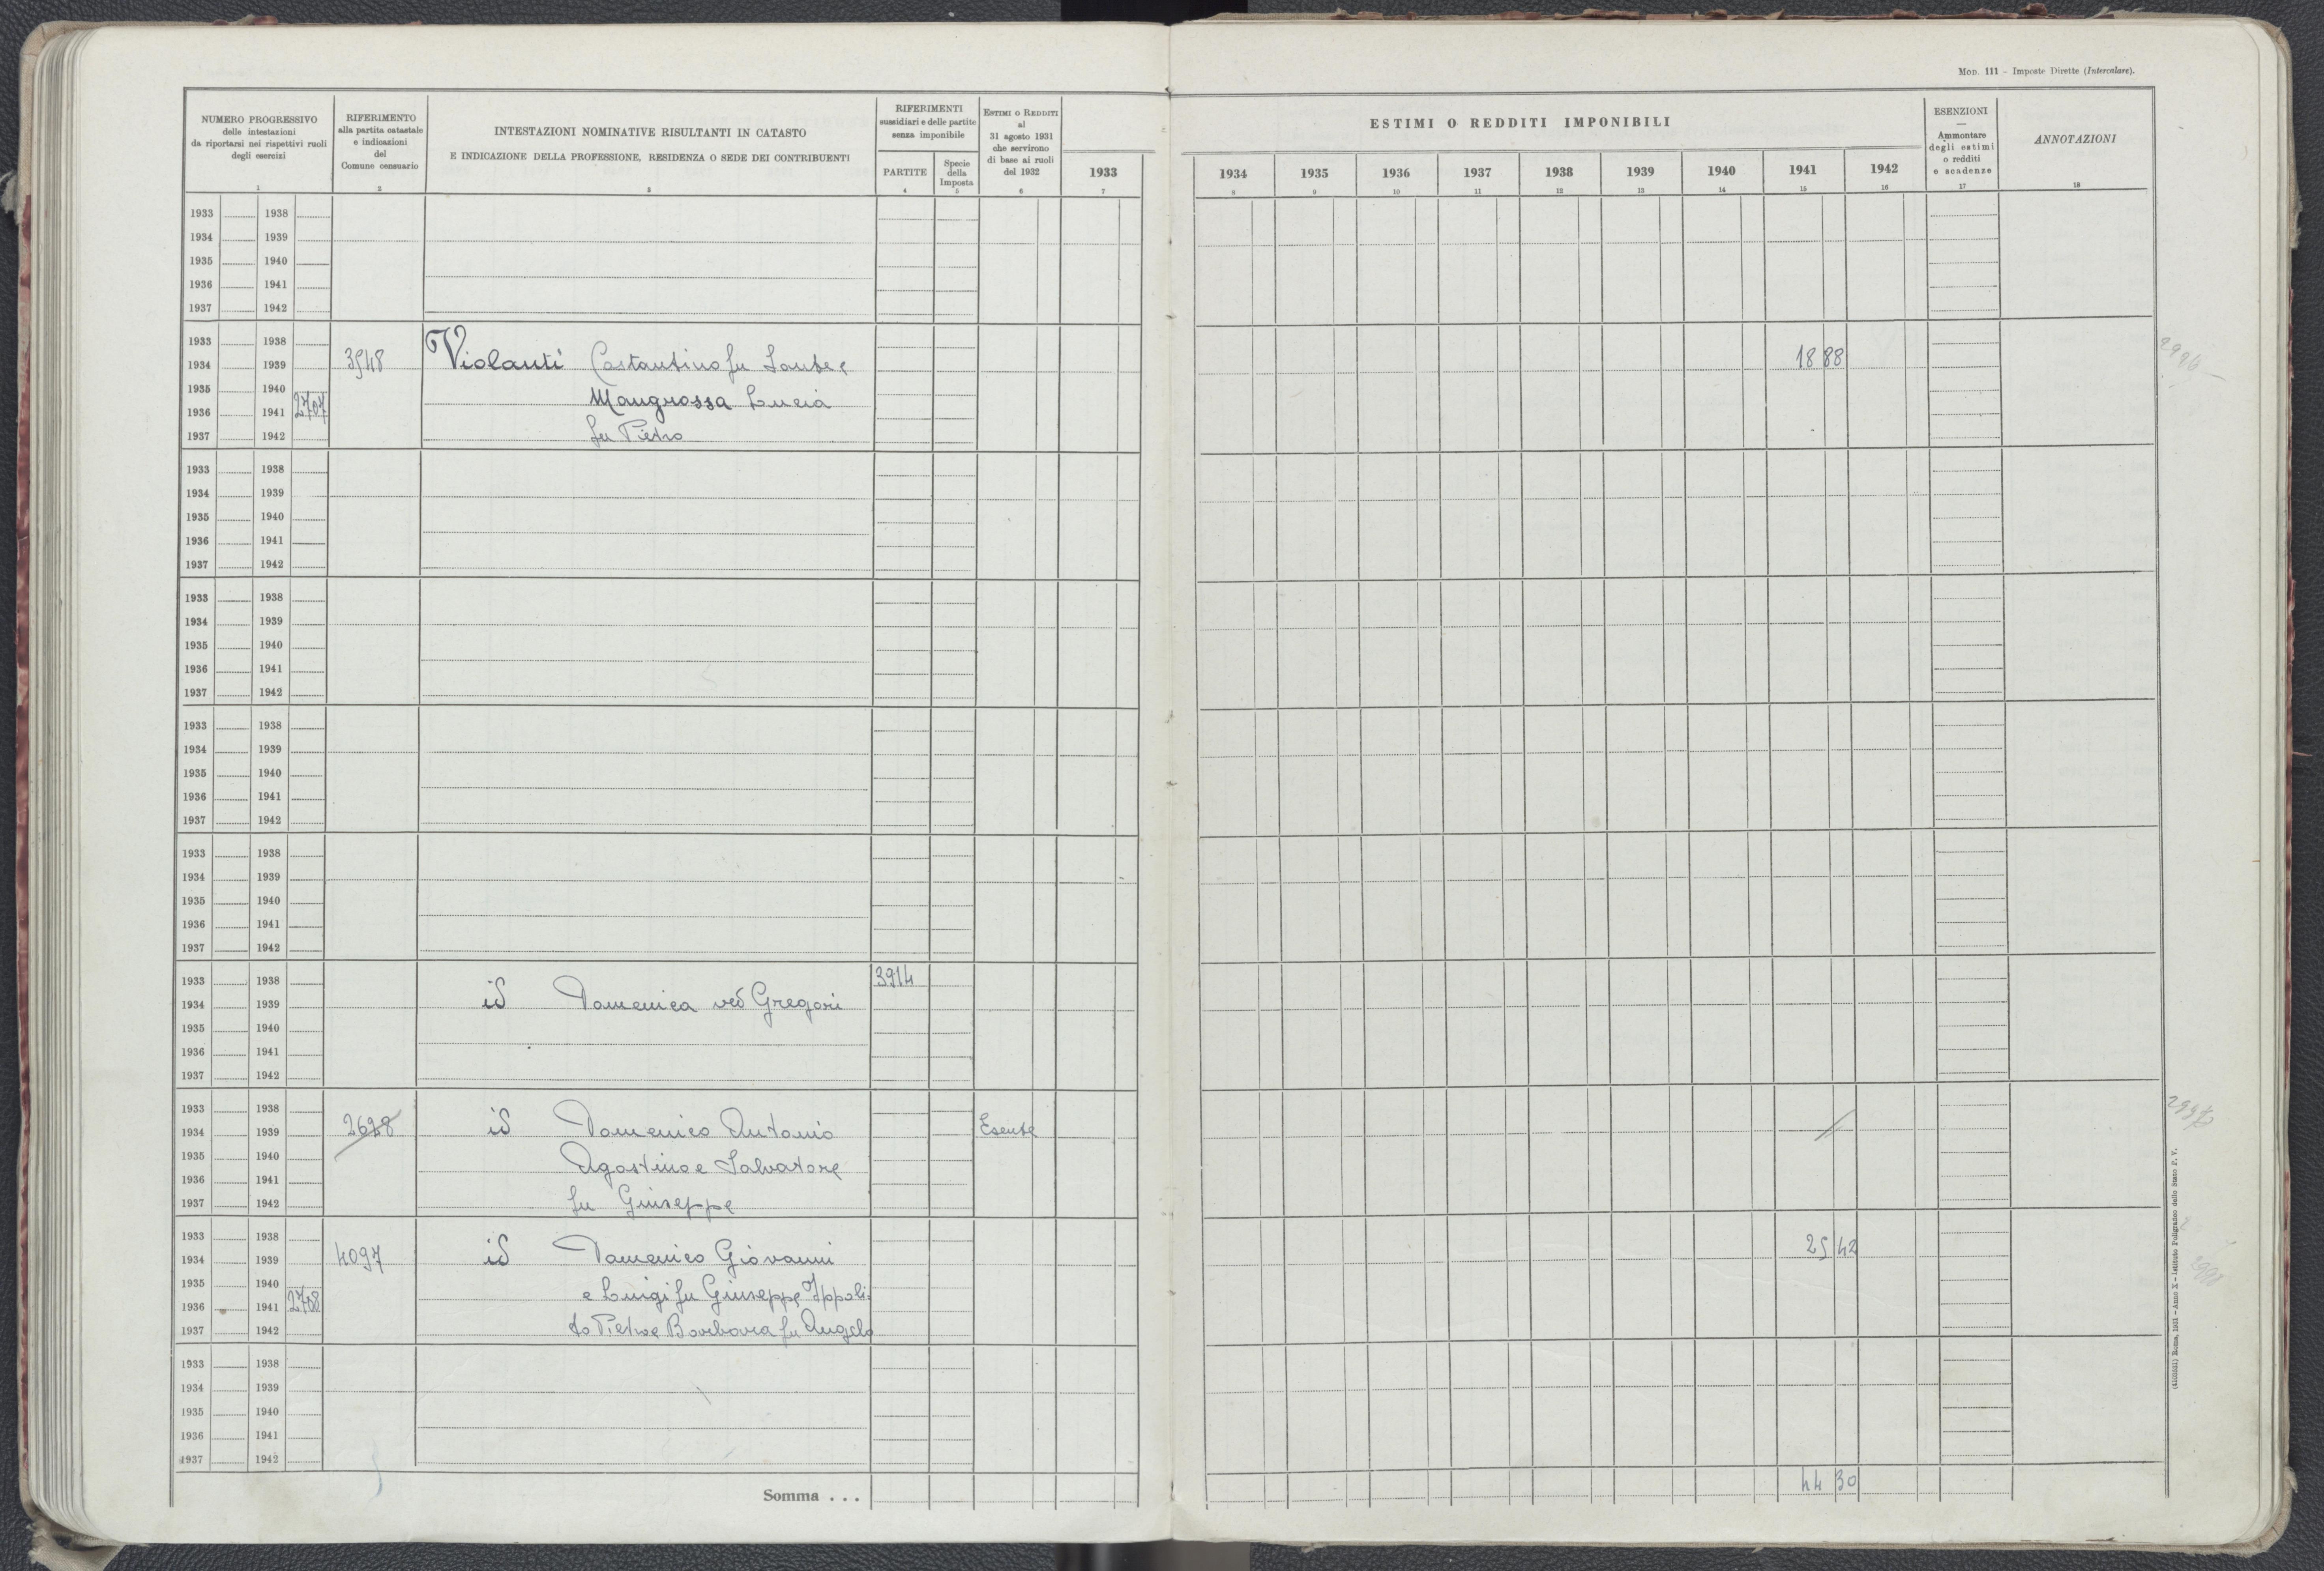 Mod. 111 - Imposte Dirette (Intercalare).
NUMERO PROGRESSIVO
delle intestazioni
da riportarsi nei rispettivi ruoli
degli esercizi
1
RIFERIMENTO
alla partita catastale
e indicazioni
del
Comune censuario
2
INTESTAZIONI NOMINATIVE RISULTANTI IN CATASTO
E INDICAZIONE DELLA PROFESSIONE, RESIDENZA O SEDE DEI CONTRIBUENTI
3
RIFERIMENTI
sussidiari e delle partite
senza imponibile
PARTITE
4
Specie
della
Imposta
5
ESTIMI O REDDITI
al
31 agosto 1931
che servirono
di base ai ruoli
del 1932
6
ESTIMI O REDDITI IMPONIBILI
1933 1934 1935 1936 1937 1938 1939 1940 1941 1942
7 8 9 10 11 12 13 14 15 16
ESENZIONI
—
Ammontare
degli estimi
o redditi
e scadenze
17
ANNOTAZIONI
18
1933 1938
1934 1939
1935 1940
1936 1941
1937 1942
1933 1938
1934 1939 3548 Violanti Costantino fu Sante e 18 88
1935 1940 Mangrossa Lucia
1936 1941 2707
1937 1942 fu Pietro
1933 1938
1934 1939
1935 1940
1936 1941
1937 1942
1933 1938
1934 1939
1935 1940
1936 1941
1937 1942
1933 1938
1934 1939
1935 1940
1936 1941
1937 1942
1933 1938
1934 1939
1935 1940
1936 1941
1937 1942
1933 1938 3914
1934 1939 id Domenica ved Gregori
1935 1940
1936 1941
1937 1942
1933 1938
1934 1939 2628 id Domenico Antonio Esente //
1935 1940 Agostino e Salvatore
1936 1941
1937 1942 fu Giuseppe
1933 1938
1934 1939 4097 id Domenico Giovanni 25 42
1935 1940 e Luigi fu Giuseppe Ippoli=
1936 1941 2708
1937 1942 to Pietro e Barbara fu Angelo
1933 1938
1934 1939
1935 1940
1936 1941
1937 1942
Somma . . . 44 30
(4103531) Roma, 1931 - Anno X - Istituto Poligrafico dello Stato P. V.